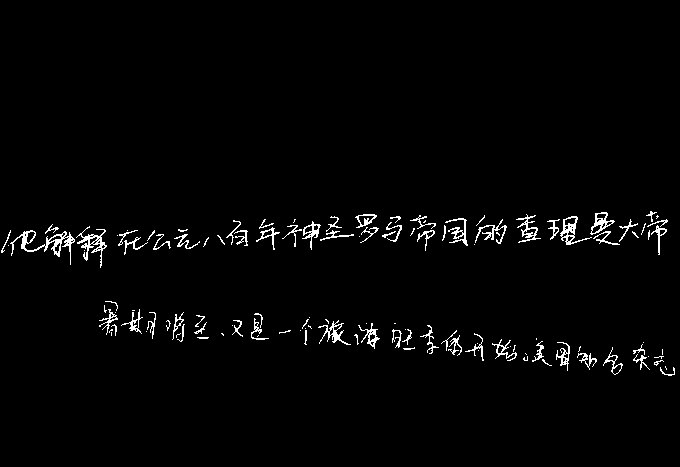 他解释在公元八百年神圣罗马帝国的查理曼大帝
暑期将至,又是一个旅游旺季的开始。美国知名杂志